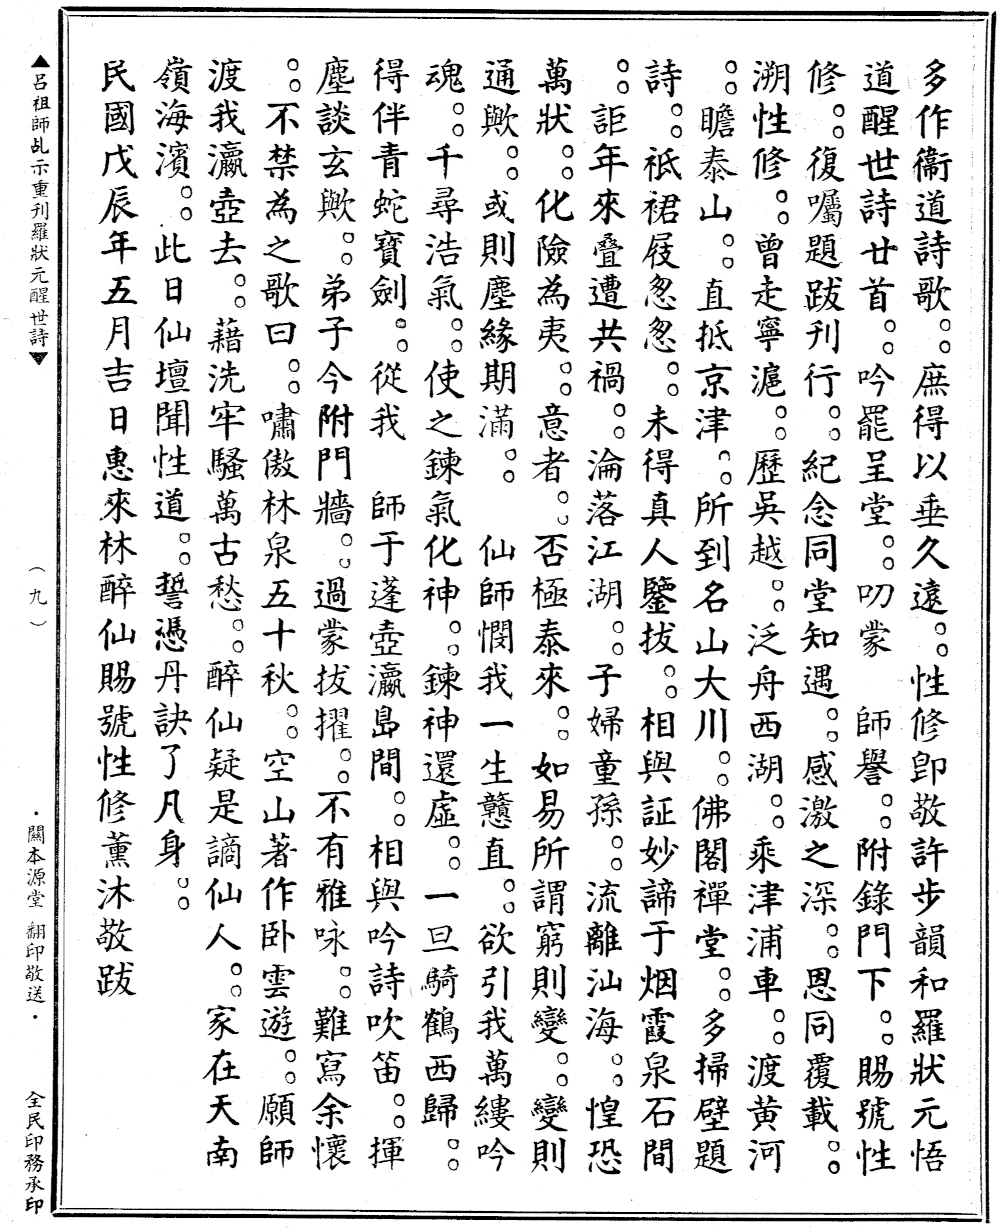 多作衞道詩歌。。庶得以垂久遠。。性修卽敬許步韻和羅狀元悟
道醒世詩廿首。。吟罷呈堂。。叨蒙　師譽。。附錄門下。。賜號性
修。。復囑題跋刊行。。紀念同堂知遇。。感激之深。。恩同覆載。。
溯性修。。曾走寧滬。。歷吳越。。泛舟西湖。。乘津浦車。。渡黃河
。。瞻泰山。。直抵京津。。所到名山大川。。佛閣禪堂。。多掃壁題
詩。。祇裙屐忽忽。。未得真人鑒拔。。相與証妙諦于烟霞泉石間
。。詎年來叠遭共禍。。淪落江湖。。子婦童孫。。流離汕海。。惶恐
萬狀。。化險為夷。。意者。。否極泰來。。如易所謂窮則變。。變則
通歟。。或則塵緣期滿。。　仙師憫我一生戇直。。欲引我萬縷吟
魂。。千尋浩氣。。使之鍊氣化神。。鍊神還虛。。一旦騎鶴西歸。。
得伴青蛇寶劍。。從我　師于蓬壺瀛島間。。相與吟詩吹笛。。揮
塵談玄歟。。弟子今附門牆。。過蒙拔擢。。不有雅咏。。難寫余懷
。。不禁為之歌曰。。嘯傲林泉五十秋。。空山著作卧雲遊。。願師
渡我瀛壺去。。藉洗牢騷萬古愁。。醉仙疑是謫仙人。。家在天南
嶺海濱。。此日仙壇聞性道。。誓憑丹訣了凡身。。
民國戊辰年五月吉日惠來林醉仙賜號性修薰沐敬跋
▲呂祖師乩示重刊羅狀元醒世詩▼
（九）
・關本源堂　翻印敬送・
全民印務承印